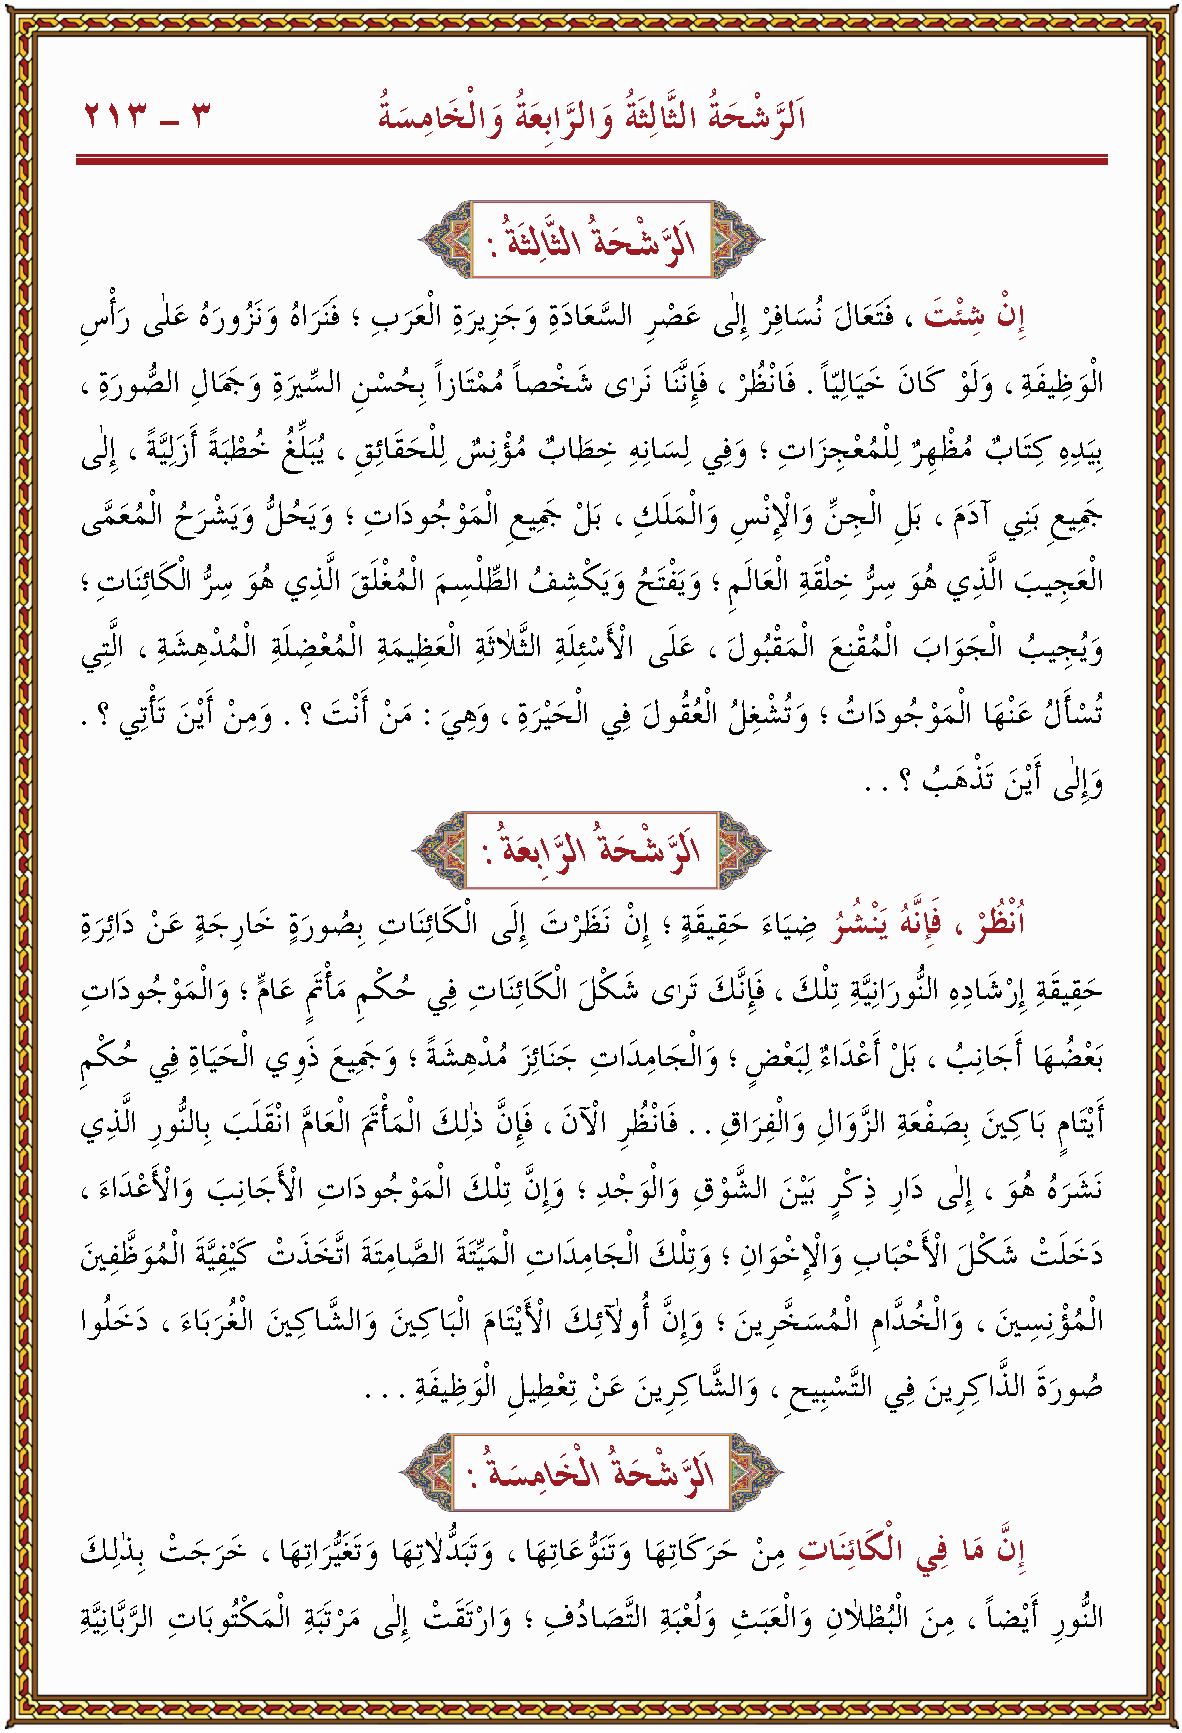 اَلرَّشْحَةُ الثَّالِثَةُ وَالرَّابِعَةُ وَالْخَامِسَةُ ٣ ـ ٢١٣
اَلرَّشْحَةُ الثَّالِثَةُ :
إِنْ شِئْتَ ، فَتَعَالَ نُسَافِرْ إِلٰى عَصْرِ السَّعَادَةِ وَجَزِيرَةِ الْعَرَبِ ؛ فَنَرَاهُ وَنَزُورُهُ عَلٰى رَأْسِ
الْوَظِيفَةِ ، وَلَوْ كَانَ خَيَالِيّاً . فَانْظُرْ ، فَإِنَّنَا نَرٰى شَخْصاً مُمْتَازاً بِحُسْنِ السِّيرَةِ وَجَمَالِ الصُّورَةِ ،
بِيَدِهِ كِتَابٌ مُظْهِرٌ لِلْمُعْجِزَاتِ ؛ وَفِي لِسَانِهِ خِطَابٌ مُؤْنِسٌ لِلْحَقَائِقِ ، يُبَلِّغُ خُطْبَةً أَزَلِيَّةً ، إِلٰى
جَمِيعِ بَنِي آدَمَ ، بَلِ الْجِنِّ وَالْإِنْسِ وَالْمَلَكِ ، بَلْ جَمِيعِ الْمَوْجُودَاتِ ؛ وَيَحُلُّ وَيَشْرَحُ الْمُعَمَّى
الْعَجِيبَ الَّذِي هُوَ سِرُّ خِلْقَةِ الْعَالَمِ ؛ وَيَفْتَحُ وَيَكْشِفُ الطِّلْسِمَ الْمُغْلَقَ الَّذِي هُوَ سِرُّ الْكَائِنَاتِ ؛
وَيُجِيبُ الْجَوَابَ الْمُقْنِعَ الْمَقْبُولَ ، عَلَى الْأَسْئِلَةِ الثَّلَاثَةِ الْعَظِيمَةِ الْمُعْضِلَةِ الْمُدْهِشَةِ ، الَّتِي
تُسْأَلُ عَنْهَا الْمَوْجُودَاتُ ؛ وَتُشْغِلُ الْعُقُولَ فِي الْحَيْرَةِ ، وَهِيَ : مَنْ أَنْتَ ؟ . وَمِنْ أَيْنَ تَأْتِي ؟ .
وَإِلٰى أَيْنَ تَذْهَبُ ؟ . .
اَلرَّشْحَةُ الرَّابِعَةُ :
اُنْظُرْ ، فَإِنَّهُ يَنْشُرُ ضِيَاءَ حَقِيقَةٍ ؛ إِنْ نَظَرْتَ إِلَى الْكَائِنَاتِ بِصُورَةٍ خَارِجَةٍ عَنْ دَائِرَةِ
حَقِيقَةِ إِرْشَادِهِ النُّورَانِيَّةِ تِلْكَ ، فَإِنَّكَ تَرٰى شَكْلَ الْكَائِنَاتِ فِي حُكْمِ مَأْتَمٍ عَامٍّ ؛ وَالْمَوْجُودَاتِ
بَعْضُهَا أَجَانِبُ ، بَلْ أَعْدَاءٌ لِبَعْضٍ ؛ وَالْجَامِدَاتِ جَنَائِزَ مُدْهِشَةً ؛ وَجَمِيعَ ذَوِي الْحَيَاةِ فِي حُكْمِ
أَيْتَامٍ بَاكِينَ بِصَفْعَةِ الزَّوَالِ وَالْفِرَاقِ . . فَانْظُرِ الْآنَ ، فَإِنَّ ذٰلِكَ الْمَأْتَمَ الْعَامَّ انْقَلَبَ بِالنُّورِ الَّذِي
نَشَرَهُ هُوَ ، إِلٰى دَارِ ذِكْرٍ بَيْنَ الشَّوْقِ وَالْوَجْدِ ؛ وَإِنَّ تِلْكَ الْمَوْجُودَاتِ الْأَجَانِبَ وَالْأَعْدَاءَ ،
دَخَلَتْ شَكْلَ الْأَحْبَابِ وَالْإِخْوَانِ ؛ وَتِلْكَ الْجَامِدَاتِ الْمَيِّتَةَ الصَّامِتَةَ اتَّخَذَتْ كَيْفِيَّةَ الْمُوَظَّفِينَ
الْمُؤْنِسِينَ ، وَالْخُدَّامِ الْمُسَخَّرِينَ ؛ وَإِنَّ أُولٰئِكَ الْأَيْتَامَ الْبَاكِينَ وَالشَّاكِينَ الْغُرَبَاءَ ، دَخَلُوا
صُورَةَ الذَّاكِرِينَ فِي التَّسْبِيحِ ، وَالشَّاكِرِينَ عَنْ تِعْطِيلِ الْوَظِيفَةِ . . .
اَلرَّشْحَةُ الْخَامِسَةُ :
إِنَّ مَا فِي الْكَائِنَاتِ مِنْ حَرَكَاتِهَا وَتَنَوُّعَاتِهَا ، وَتَبَدُّلَاتِهَا وَتَغَيُّرَاتِهَا ، خَرَجَتْ بِذٰلِكَ
النُّورِ أَيْضاً ، مِنَ الْبُطْلَانِ وَالْعَبَثِ وَلُعْبَةِ التَّصَادُفِ ؛ وَارْتَقَتْ إِلٰى مَرْتَبَةِ الْمَكْتُوبَاتِ الرَّبَّانِيَّةِ